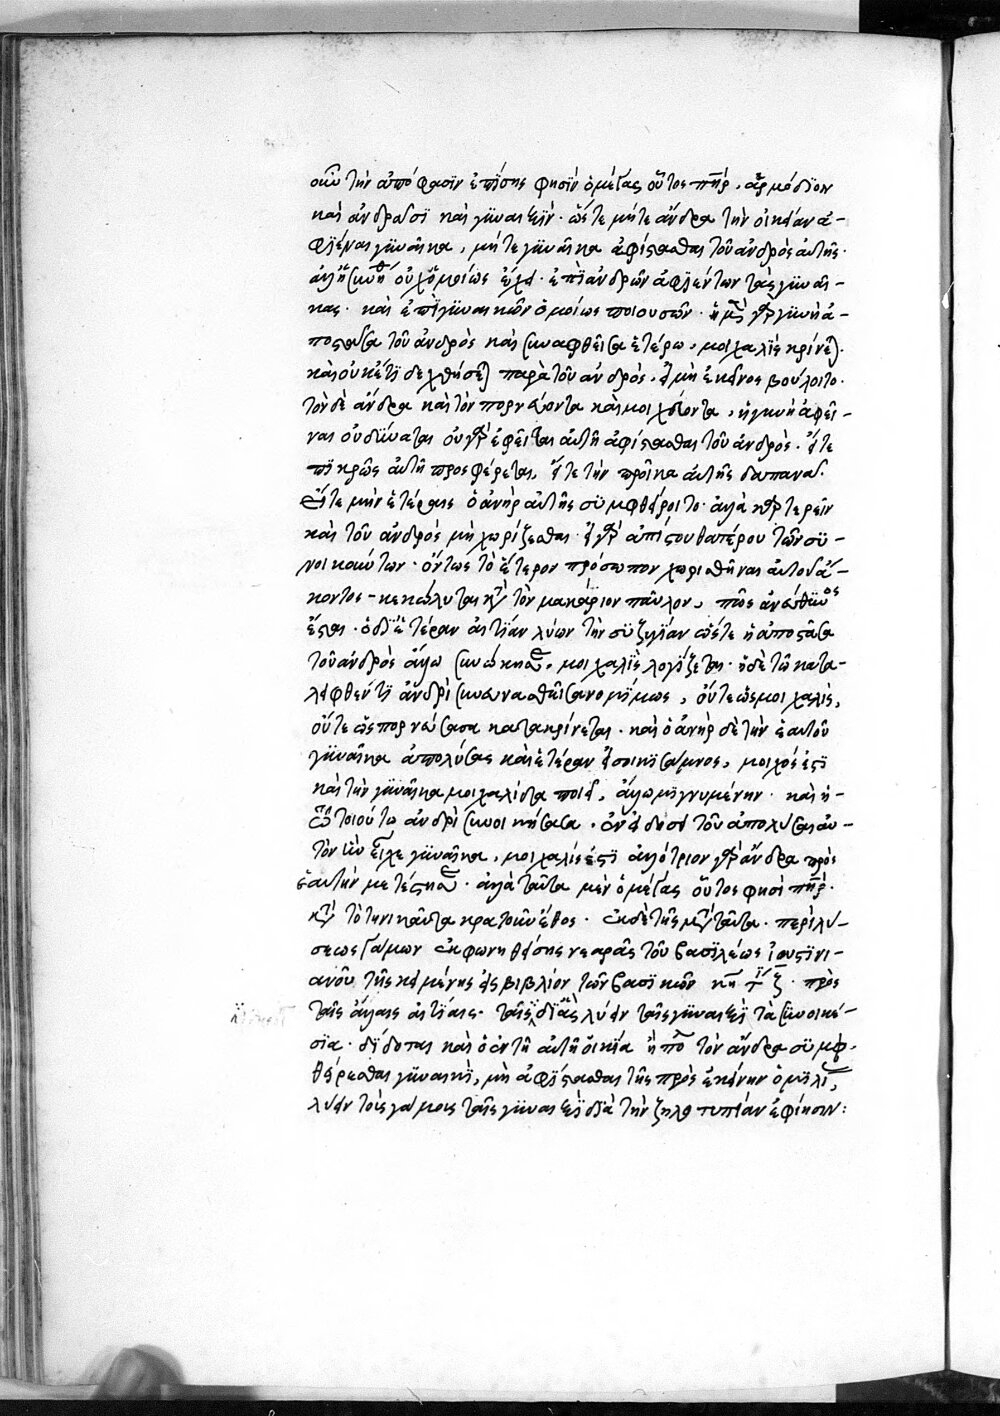 οὖν τὴν ἀπόφασιν ἐπίσης φησὶν ὁ μέγας οὗτος πηρ, ἁρμόδιον
καὶ ἀνδράσι καὶ γυναιξὶν· ὥστε μήτε ἄνδρα τὴν οἰκείαν ἀ-
φιέναι γυναῖκα, μήτε γυναῖκα ἀφίστασθαι τοῦ ἀνδρὸς αὐτῆς·
ἀλλ' ἡ συνήθ οὐχ ὁμοίως ἔχει· ἐπὶ ἀνδρῶν ἀφιέντων τὰς γυναῖ-
κας· καὶ ἐπὶ γυναικῶν ὁμοίως ποιουσῶν· ἡ μὲν γὰρ γυνὴ ἀ-
ποστᾶσα τοῦ ἀνδρὸς καὶ συναφθεῖσα ἑτέρω, μοιχαλὶς κρίνεται·
καὶ οὐκέτι δεχθήσεται παρὰ τοῦ ἀνδρὸς, εἰ μὴ ἐκεῖνος βούλοιτο·
τὸν δὲ ἄνδρα καὶ τὸν πορνεύοντα καὶ μοιχεύοντα, ἡ γυνὴ ἀφεῖ-
ναι οὐ δύναται οὐ γὰρ ἐφεῖται αὐτῆ ἀφίστασθαι τοῦ ἀνδρός· εἴτε
πικρῶς αὐτῆ προσφέρεται, εἴτε τὴν προῖκα αὐτῆς δαπανᾶ·
εἴτε μὴν ἑτέραις ὁ ἀνὴρ αὐτῆς συμφθείροιτο· ἀλλὰ καρτερεῖν
καὶ τοῦ ἀνδρὸς μὴ χωρίζεσθαι· εἰ γὰρ ἀπίστου θατέρου τῶν συ-
νοικούντων· ὄντως τὸ ἕτερον πρόσωπον χωρισθῆναι αὐτοῦ ἄ-
κοντος κεκώλυται κατὰ τὸν μακάριον παῦλον, πῶς ἀνεύθυνος
ἔσται· ὁ δι' ἑτέραν αἰτίαν λύων τὴν συζυγίαν ὥστε ἡ ἀποστᾶσα
τοῦ ἀνδρὸς ἄλλω συνώκησε, μοιχαλὶς λογίζεται· ἡ δὲ τῶ κατα-
λειφθέντι ἀνδρὶ συνευνασθεῖσα νομίμως, οὔτε ὡς μοιχαλὶς,
οὔτε ὡς πορνεύσασα κατακρίνεται· καὶ ὁ ἀνὴρ δὲ τὴν ἑαυτοῦ
γυναῖκα ἀπολύσας καὶ ἑτέραν εἰσοικισάμενος, μοιχός ἐστι
καὶ τὴν γυναῖκα μοιχαλίδα ποιεῖ, ἄλλω μιγνυμένην· καὶ ἡ
τῶ τοιούτω ἀνδρὶ συνοικήσασα, ἐν εἰδήσει τοῦ ἀπολῦσαι αὐ-
τὸν ἣν εἶχε γυναῖκα, μοιχαλίς ἐστι ἀλλότριον γὰρ ἄνδρα πρὸς
ἑαυτὴν μετέστησε· ἀλλὰ ταῦτα μὲν ὁ μέγας οὗτος φησὶ πηρ·
κατὰ τὸ τηνικαῦτα κρατοῦν ἔθος· ἐκ δὲ τῆς μετὰ ταῦτα· περὶ λύ-
σεως γάμων ἐκφωνηθείσης νεαρᾶς τοῦ βασιλέως ἰουστινι-
ανοῦ τῆς κειμένης εἰς βιβλίον τῶν βασιλικῶν κη τι ζ· πρὸς
ταῖς ἄλλαις αἰτίαις· ταῖς δι' ἃς λύειν ταῖς γυναιξὶ τὰ συνοικέ-
σια· δίδοται καὶ ὁ ἐν τῆ αὐτῆ οἰκία ἢ πό τὸν ἄνδρα συμφ-
θείρεσθαι γυναικὶ, μὴ ἀφίστασθαι τῆς πρὸς ἐκείνην ὁμιλί,
λύειν τοὺς γάμους ταῖς γυναιξὶ διὰ τὴν ζηλοτυπίαν ἐφίησιν: